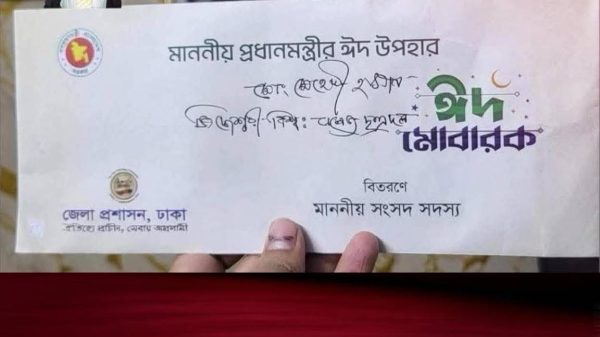 মাননীয় প্রধানমন্ত্রীর ঈদ উপহার
মোঃ মেহেদী হাসান
ঈদ
মোবারক
বিতরণে
মাননীয় সংসদ সদস্য
জেলা প্রশাসন, ঢাকা
ঐতিহ্যে প্রাচীন, সেবায় অগ্রগামী